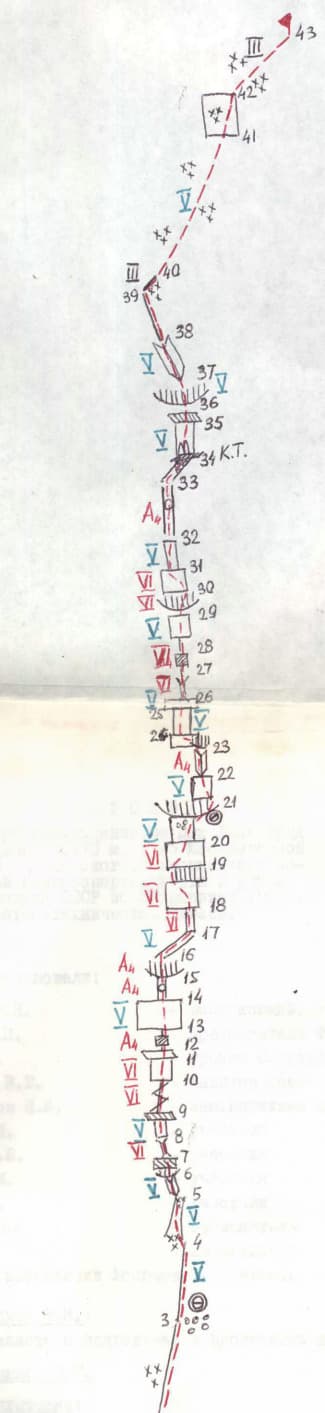 43
III
42
41
V
III 40
39
38
V
37
V
36
35
V
34 К.Т.
33
А4
32
V
31
VI
30
VI
29
V
28
VI
27
VI
26
V
25
V
24
23
А4
22
V
21
V
20
VI
19
18
VI
VI
17
V
16
А4
15
А4
14
V
13
А4
12
11
VI
10
VI
9
V
8
VI
7
6
V
5
V
4
V
3